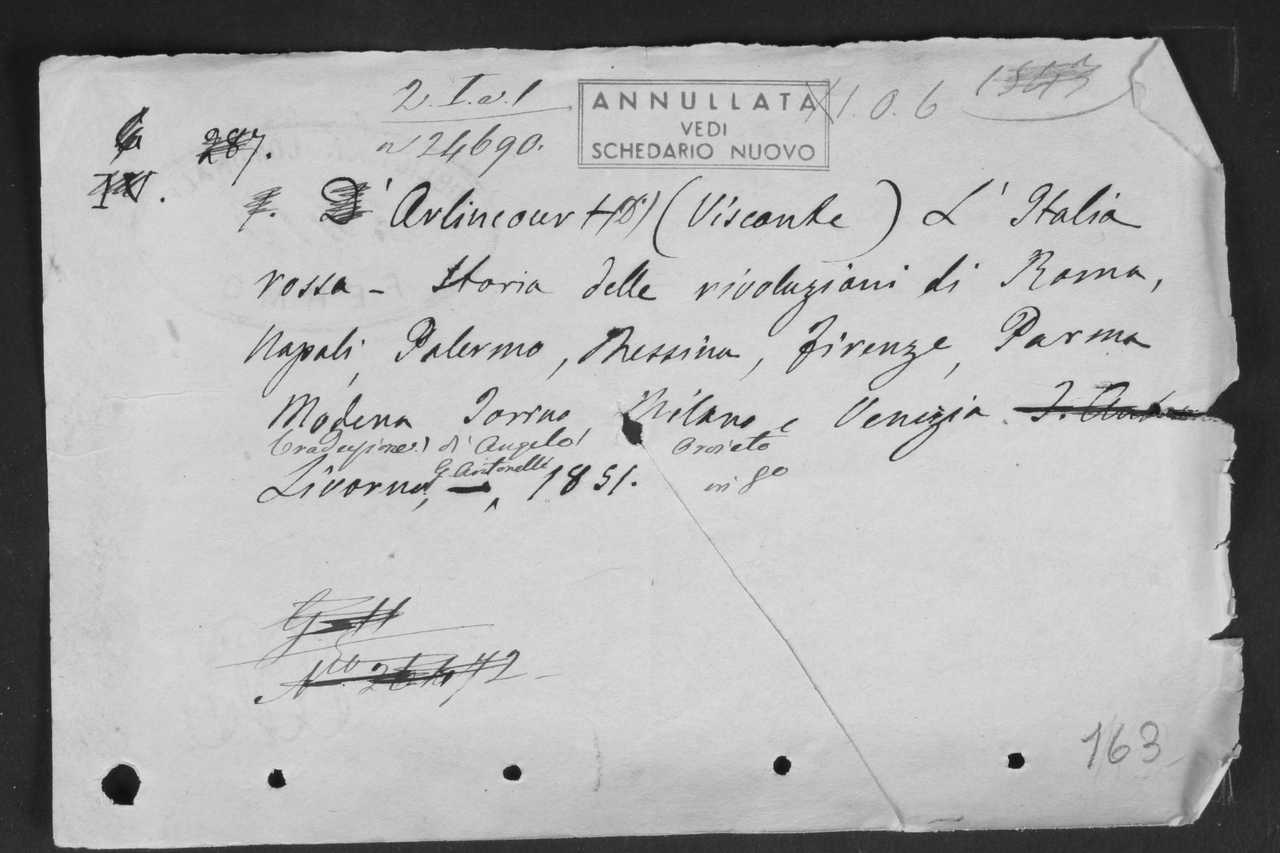 2. I. a. 1
n 24690.
ANNULLATA
VEDI
SCHEDARIO NUOVO
1. 0. 6
287.
D' Arlincourt (D') (Visconte) L' Italia
rossa - Storia delle rivoluzioni di Roma,
Napoli, Palermo, Messina, Firenze, Parma
Modena Torino Milano e Venezia
traduzione di Angelo Orvieto
G. Antonelli
Livorno, 1851. in 8°
163